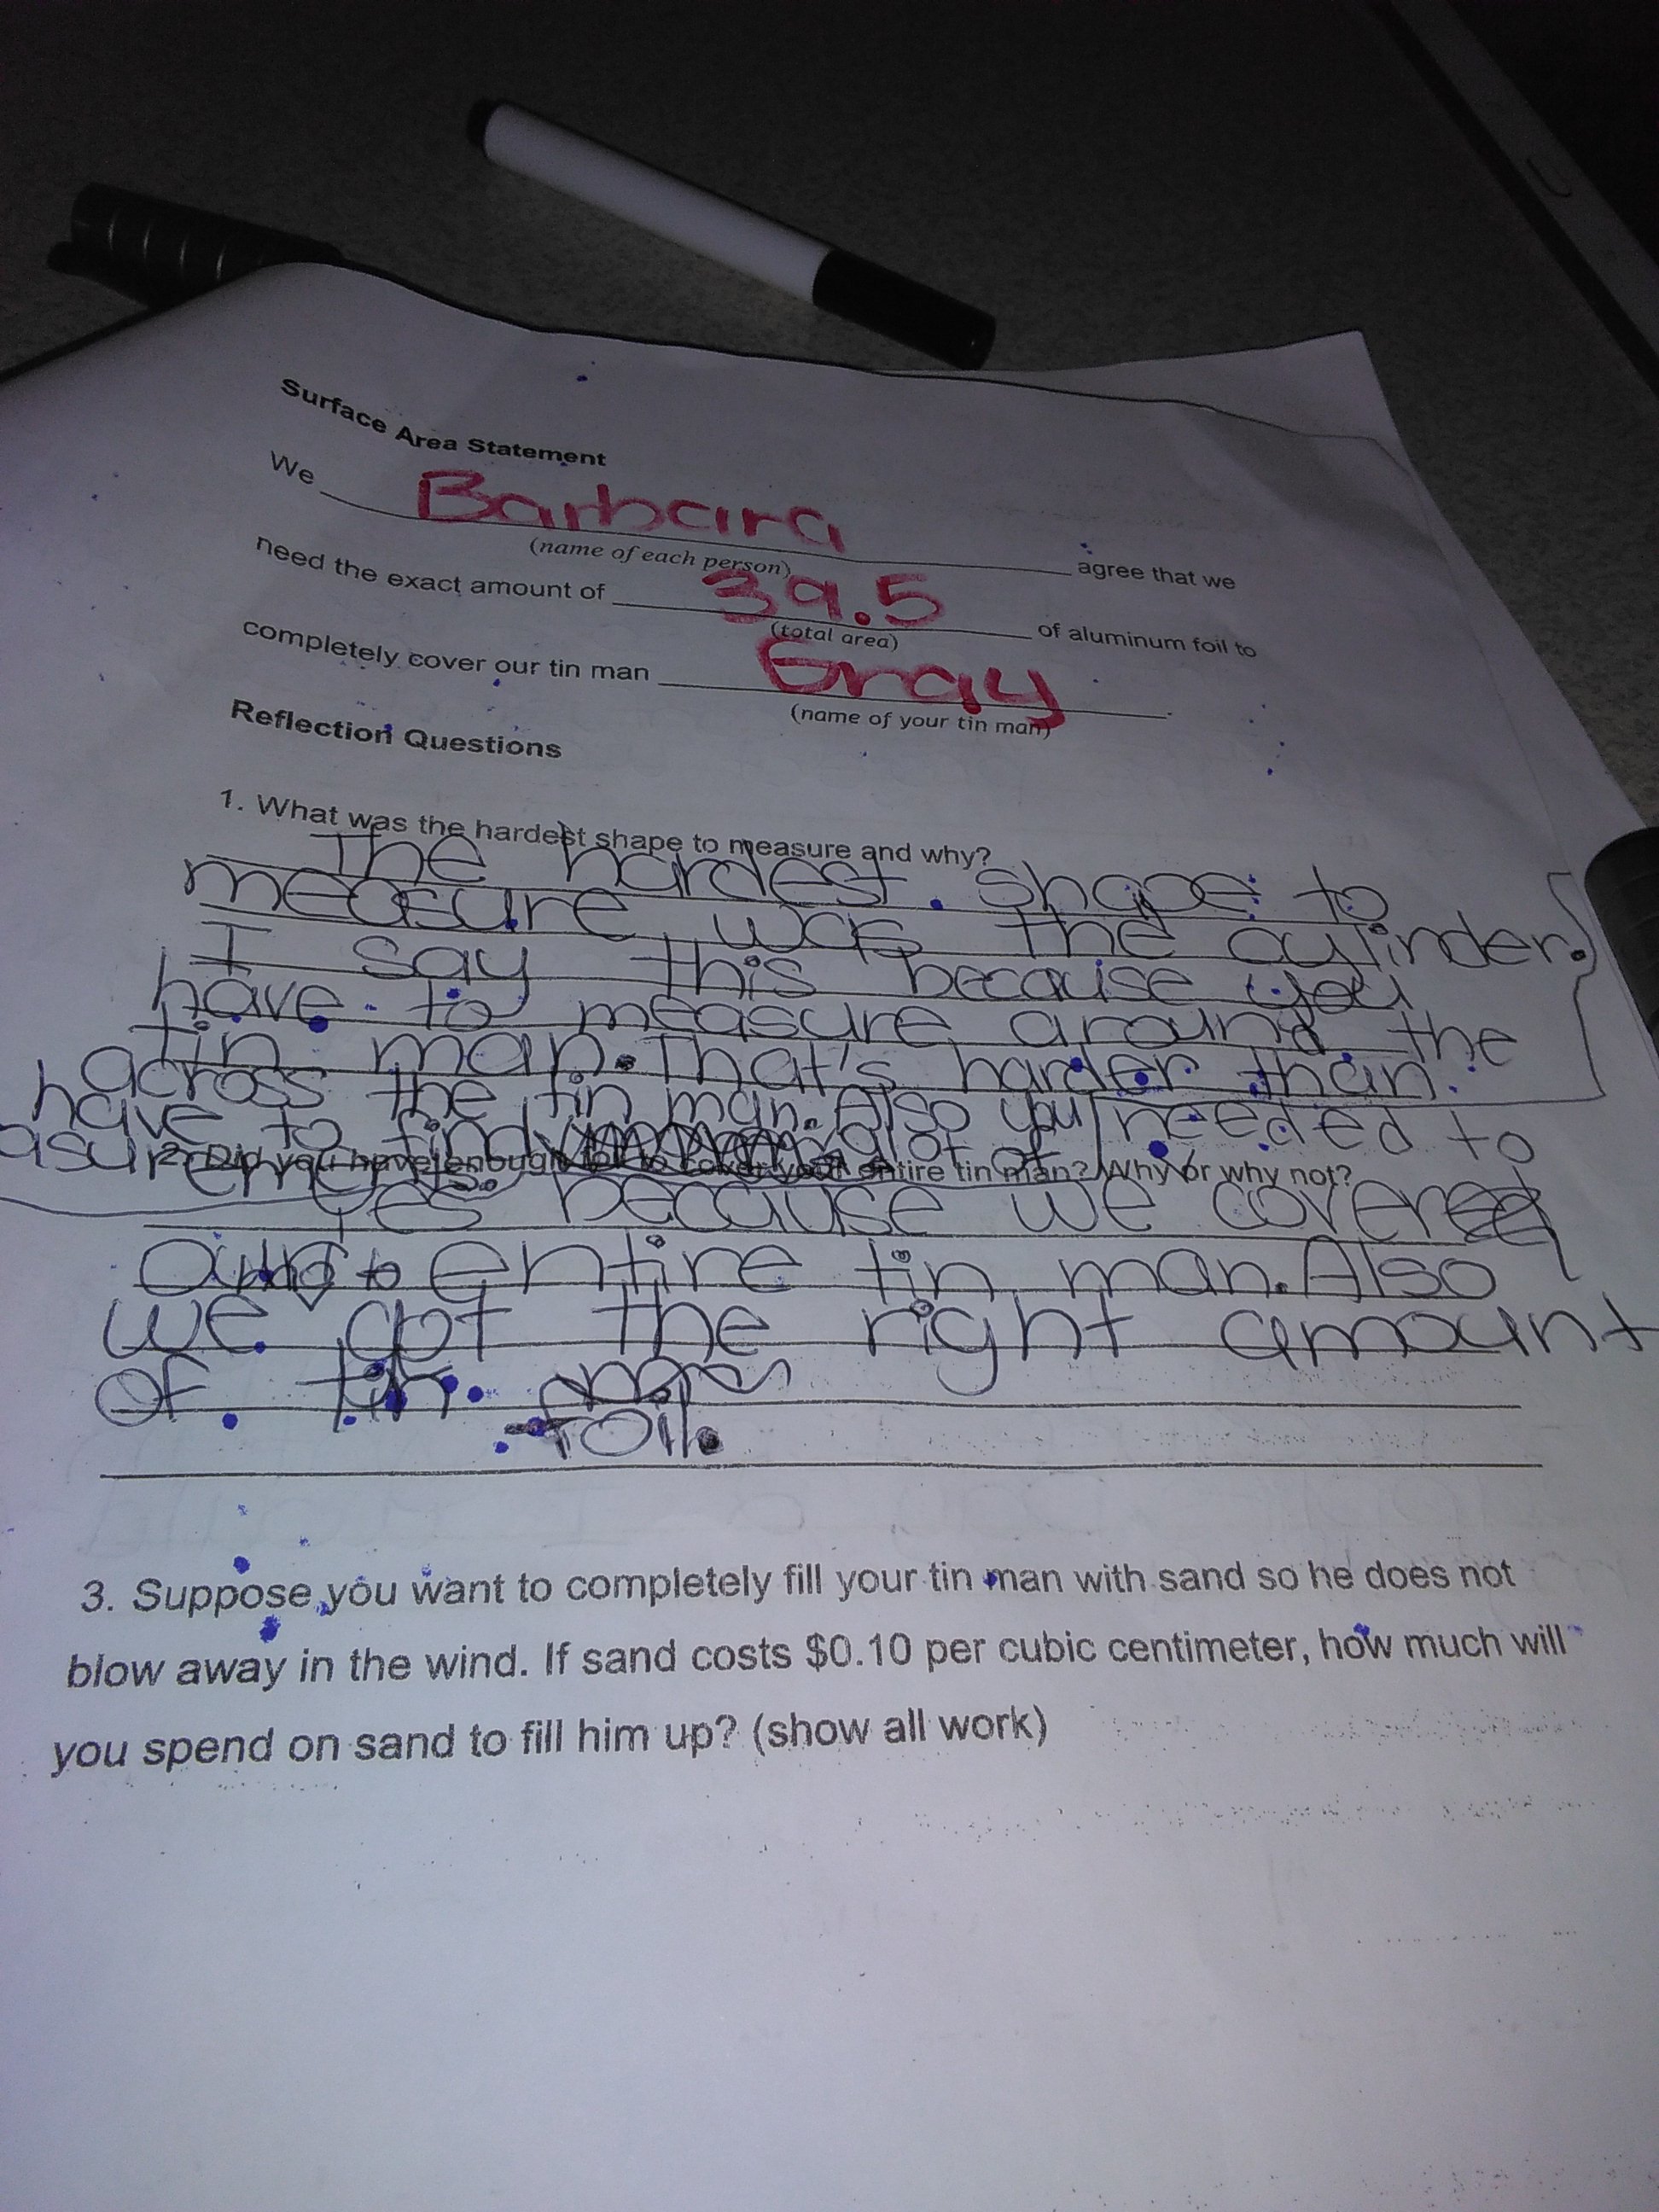 Surface Area Statement
We Barbara agree that we
(name of each person)
need the exact amount of 39.5 of aluminum foil to
(total area)
completely cover our tin man Gray.
(name of your tin man)
Reflection Questions
1. What was the hardest shape to measure and why?
The hardest shape to
measure was the cylinder.
I say this because you
have to measure around the
tin man. That's harder than
across the tin man. Also you needed to
have to find a lot of
asurements.
2. Did you have enough foil to cover your entire tin man? Why or why not?
Yes because we covered
our entire tin man. Also
we got the right amount
of tin
foil.
3. Suppose you want to completely fill your tin man with sand so he does not
blow away in the wind. If sand costs $0.10 per cubic centimeter, how much will
you spend on sand to fill him up? (show all work)